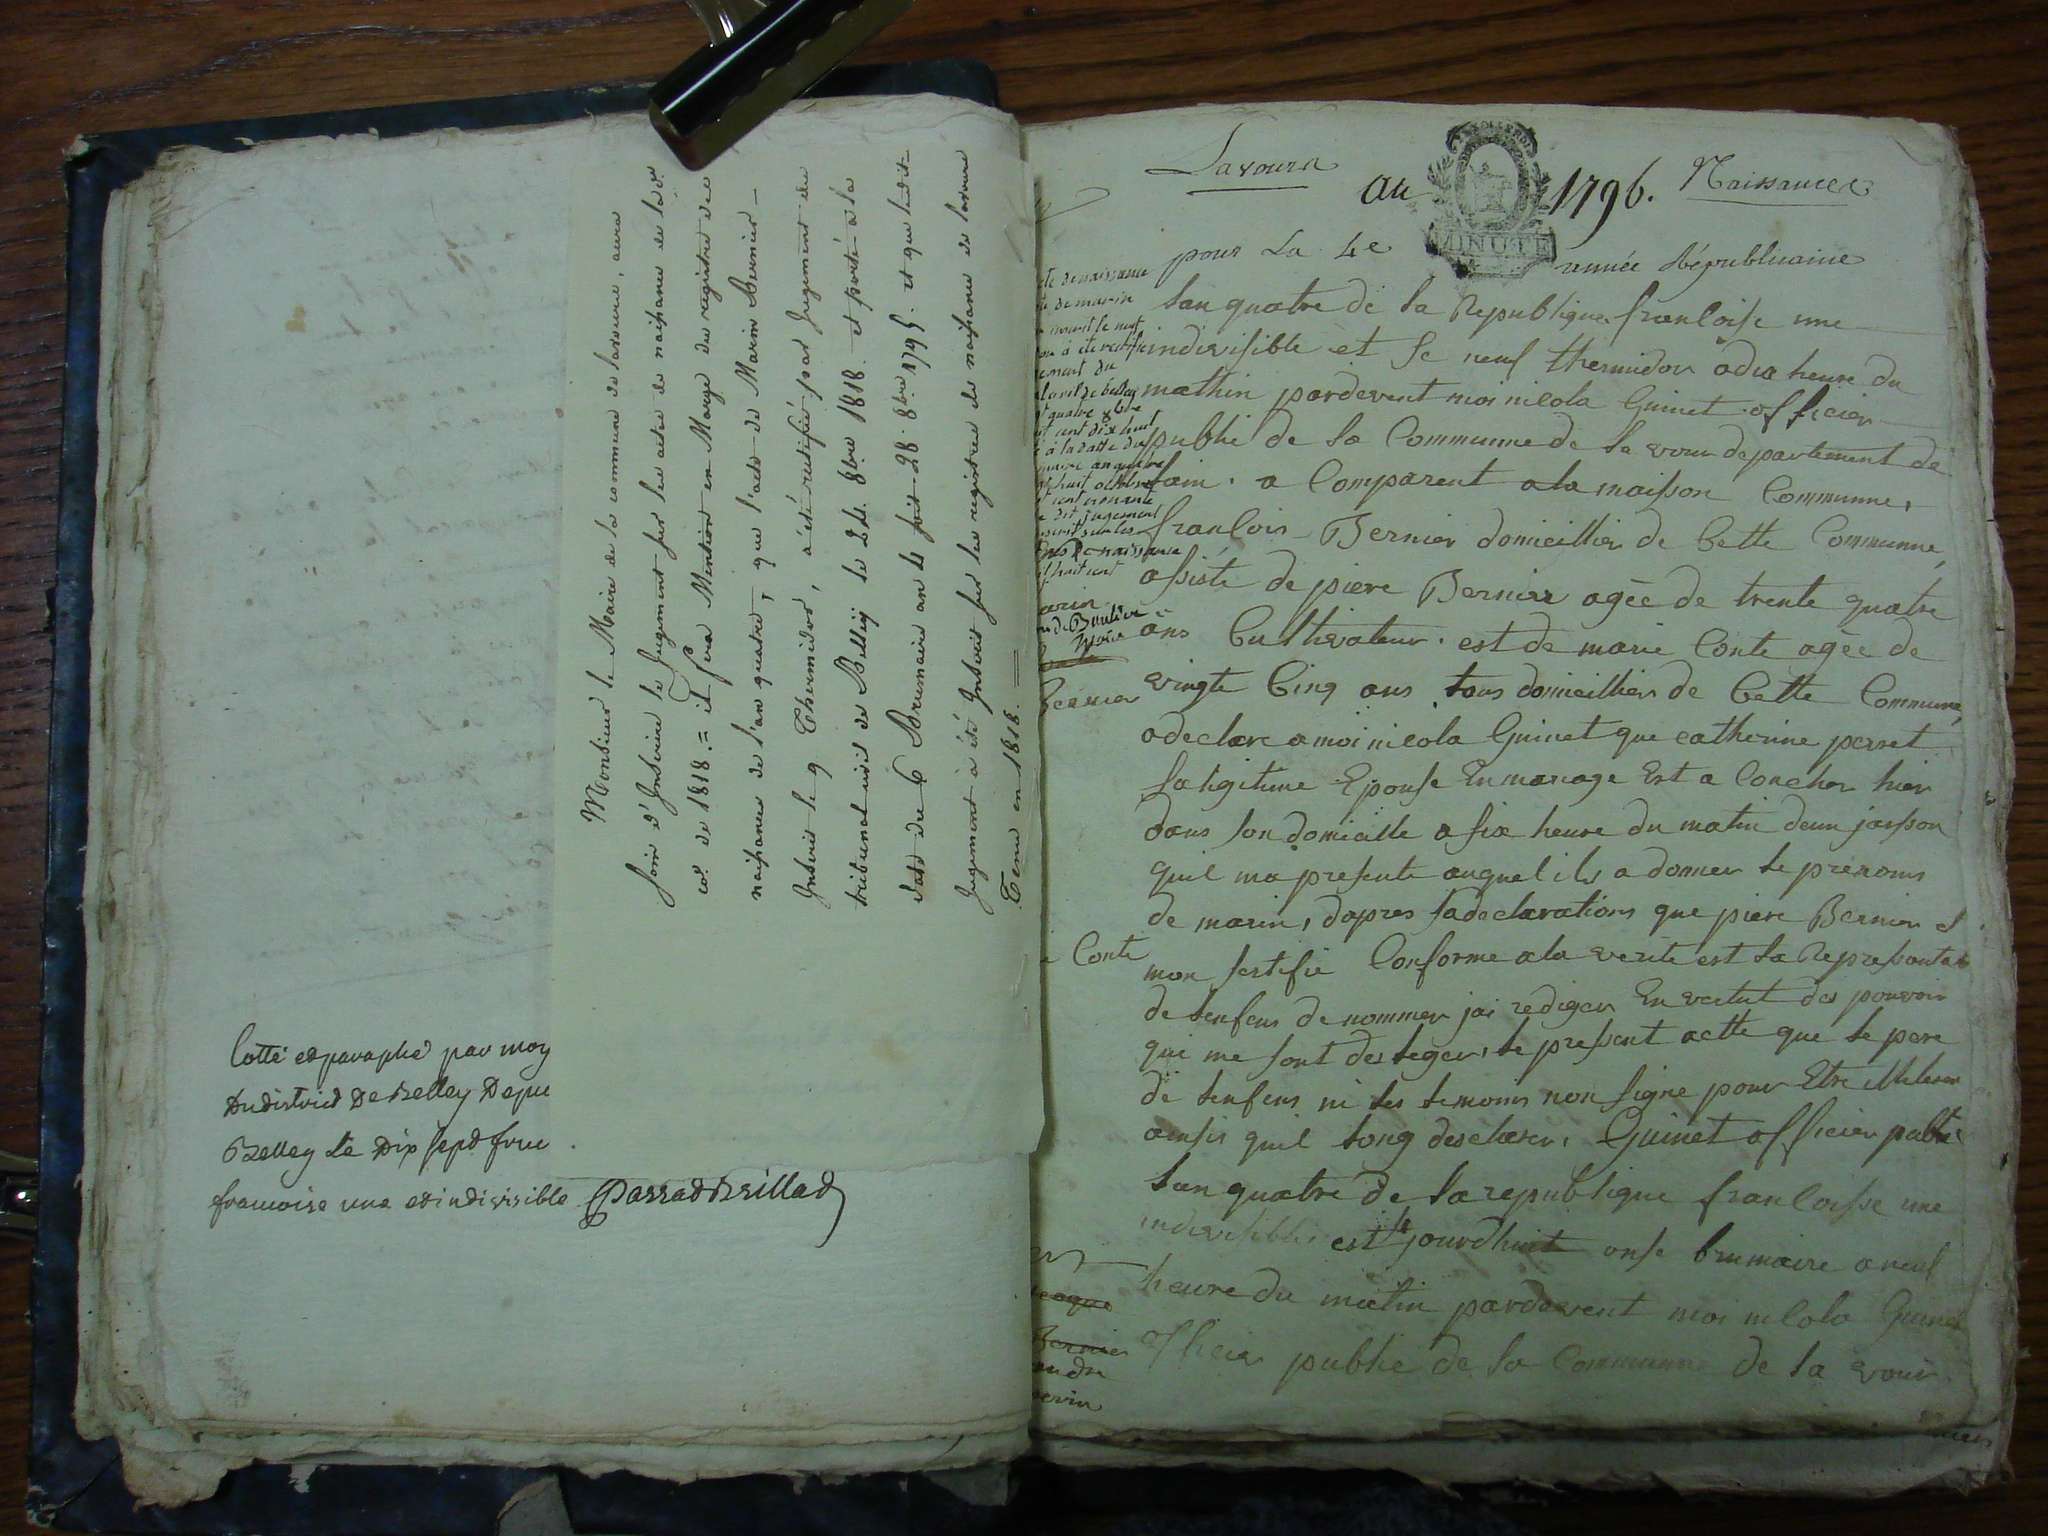 Monsieur le Maire de la commune de Lavoure, aura
soin d'Inserire le Jugement sur les actes de naissance de lad.
co. de 1818. = il fera Mention en Marge du registre de
naissances de l'an quatre, que l'acte de Marin Bernier -
Inscrit le 9 Thermidor, a été rectifié par Jugement du
tribunal civil de Belley le 24. 8bre 1818. et porté a la
date du 6 Brumaire an 4 soit 28. 8bre 1795. et que ledit
Jugement à été Inscrit sur les registres de naissance de lavoure
Tenu en 1818.
Cotté et paraphé par moy
Du district De Belley Depu
Belley Le Dix sept fruc
francoise une et indivisible Parrat Brillat
Lavoura au 1796. Naissances
MINUTE
pour La 4e année Républicaine
Lan quatre de la Republique francoise une
indivisible et le neuf thermidor a dix heure du
mathin pardevent moi nicola Guinet officier
public de la Commune de la vour departement de
lain. a Comparent a la maison Commune,
francois Bernier domicillier de Cette Commune,
assisté de piere Bernier agée de trente quatre
ans Culthivateur. est de marie Conte agée de
vingte Cinq ans tous domicillier de Cette Commune,
a declare a moi nicola Guinet que catherine perret
sa ligitime Epouse En mariage Est a Coucher hier
dans son domicille a six heure du matin deun garsson
quil ma presente auquel ils a donner le prenoms
de marin, dapres sa declarations que piere Bernier et
mon sertifie Conforme a la verite est la Represantation
de lenfens denommer jai rediger En vertut des pouvoir
qui me sont deleger, le pressent acte que le pere
de lenfens ni les temoins non signe pour Etre illiteres
ainsis quil long desclarer, Guinet officier public
Lan quatre de la republique francoisse une
indivisible est le jourdhuit onse brumaire a neuf
heure du matin pardevent moi nicola Guinet
officier public de la Commune de la vour
te de naissance
te de marin
ement du
civil de belley
t quatre 8bre
t cent dix huit
à la datte du
huit octobre
dit jugement
naissance
huit cent
arin
Bernier
Conte
Bernier